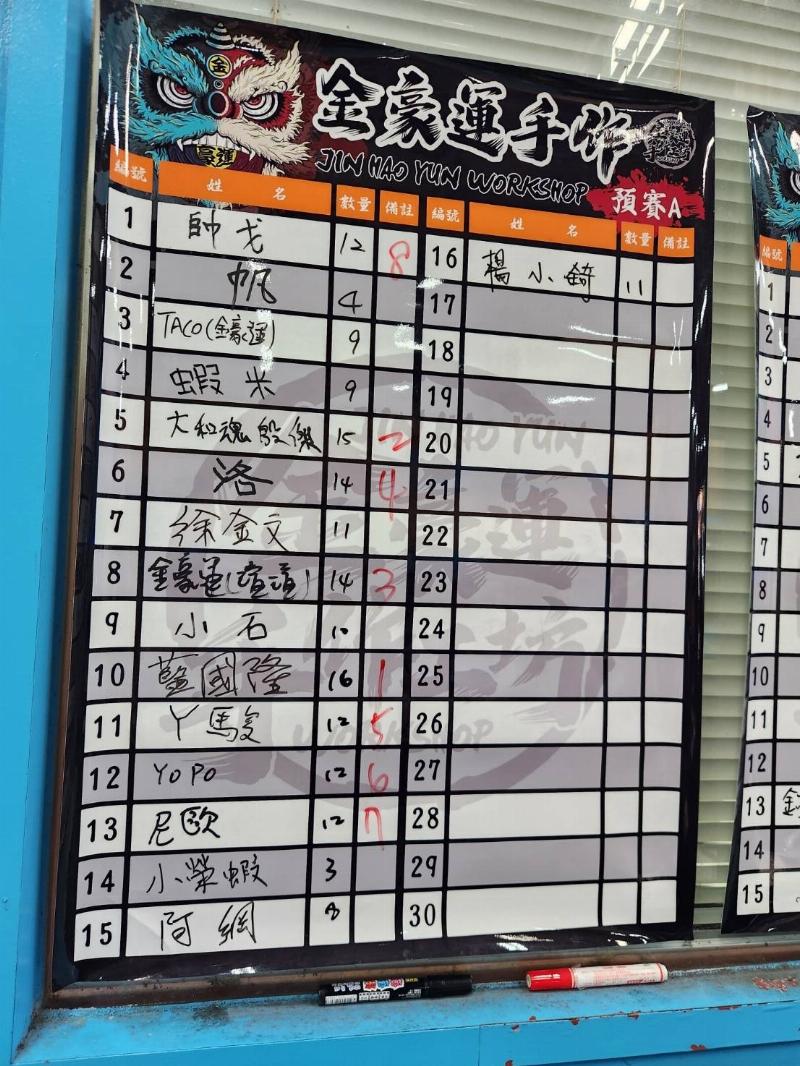 金
豪運
金豪運手作
JIN HAO YUN WORKSHOP
預賽A
編號 姓名 數量 備註 編號 姓名 數量 備註
1 帥戈 12 8 16 楊小錡 11
2 帆 4 17
3 TACO(金豪運) 9 18
4 蝦米 9 19
5 大和魂 殷傑 15 2 20
6 洛 14 4 21
7 徐金文 11 22
8 金豪運(瑄瑄) 14 3 23
9 小石 10 24
10 藍國隆 16 1 25
11 丫駿 12 5 26
12 YOPO 12 6 27
13 尼歐 12 7 28
14 小榮蝦 3 29
15 阿綱 8 30
JIN HAO YUN
WORKSHOP
編號
1
2
3
4
5
6
7
8
9
10
11
12
13
14
15